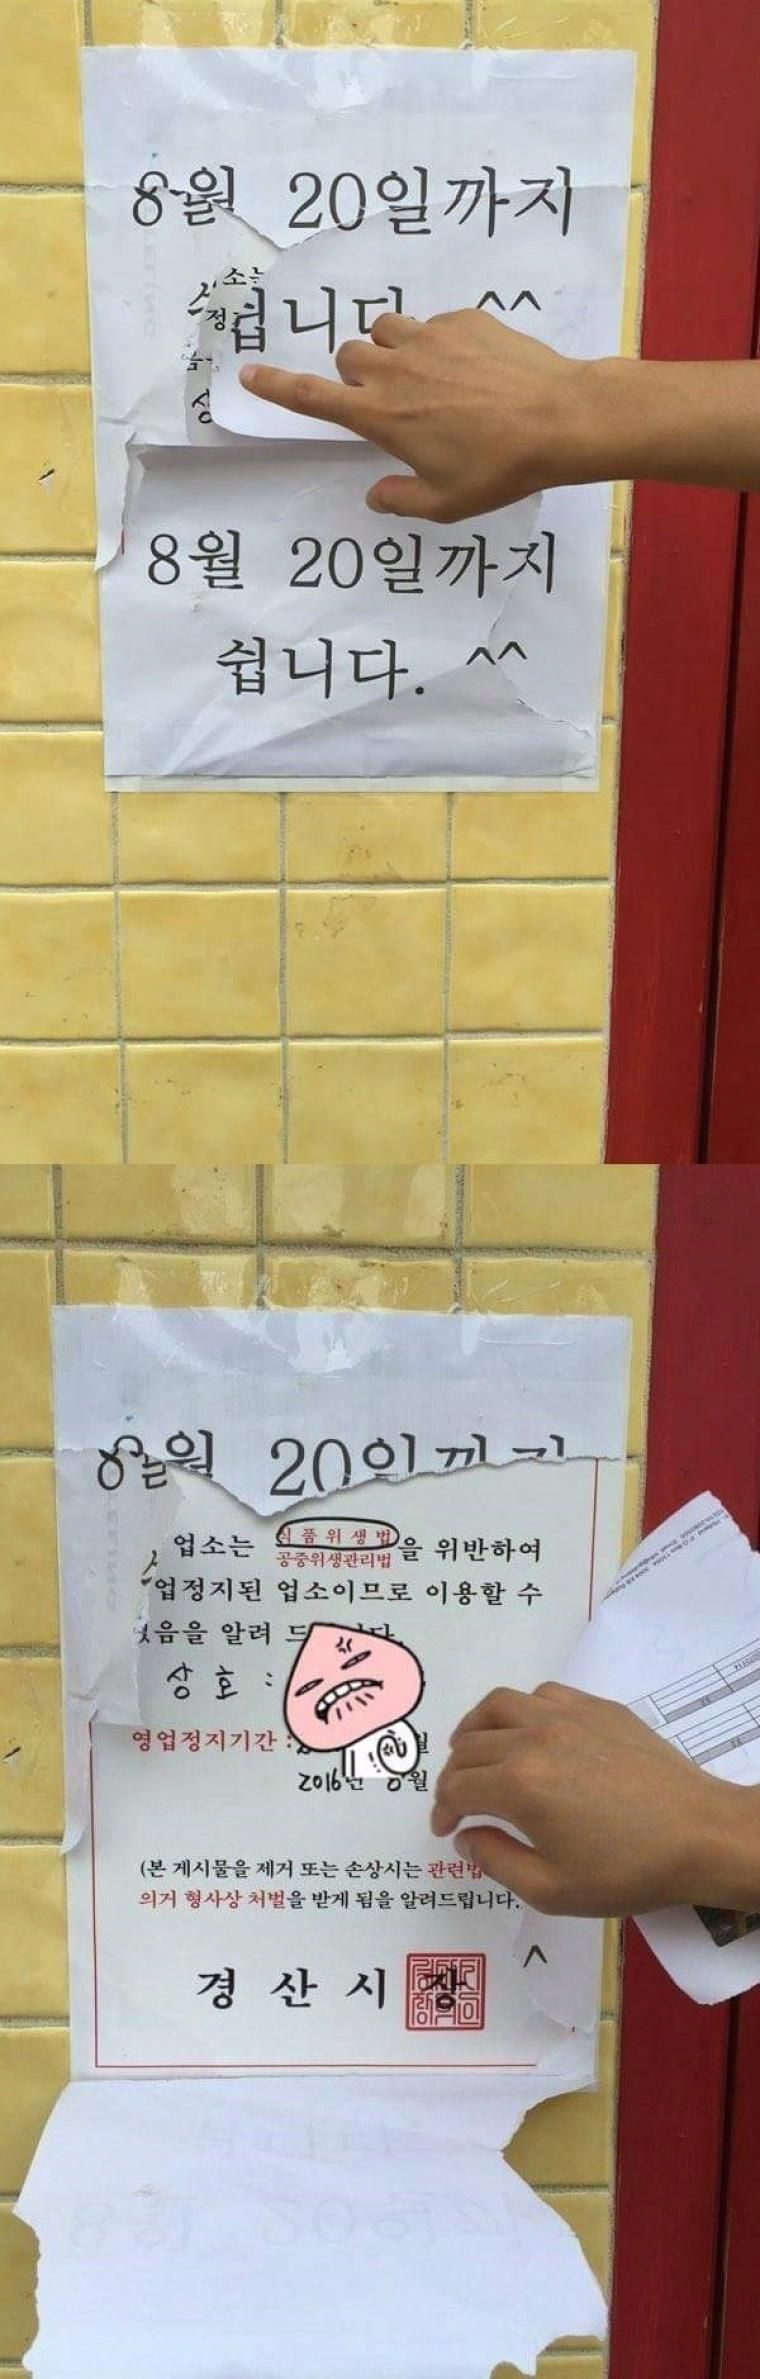 8월 20일까지
쉽니다. ^^
소는
정
8월 20일까지
쉽니다. ^^
8월 20일까지
업소는 식품위생법
공중위생관리법 을 위반하여
업정지된 업소이므로 이용할 수
음을 알려 드
상호 :
영업정지기간 :
2016년 8월
(본 게시물을 제거 또는 손상시는 관련법
의거 형사상 처벌을 받게 됨을 알려드립니다.
^
경산시장